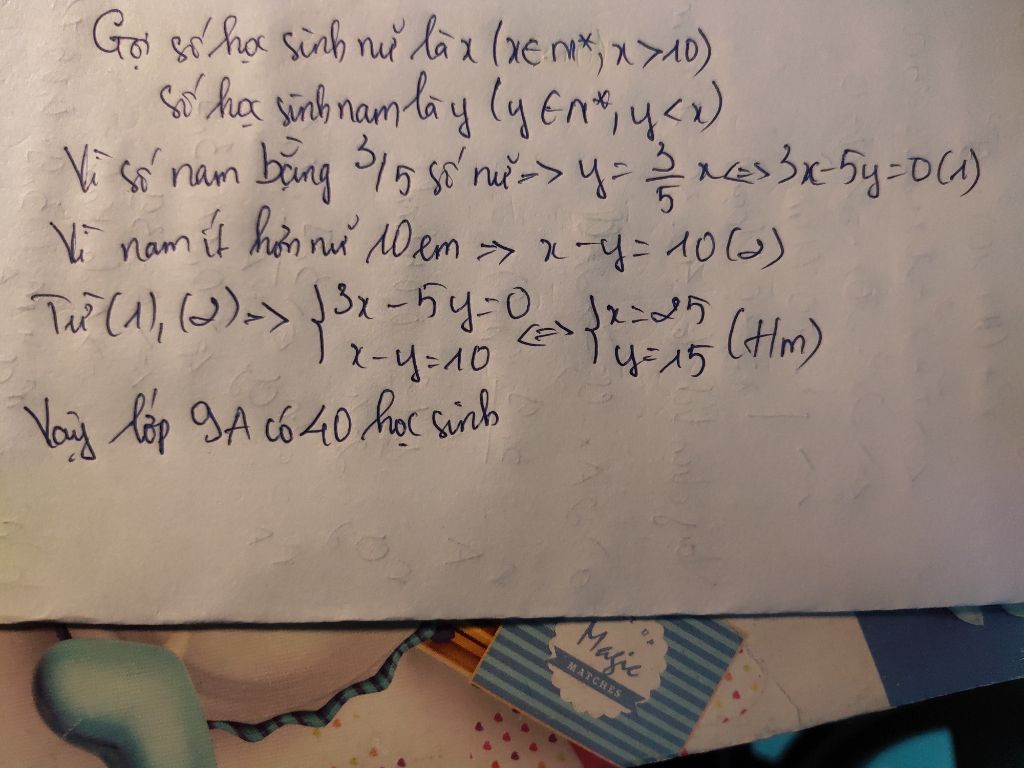 Gọi số học sinh nữ là x (x∈N*, x>10)
số học sinh nam là y (y∈N*, y<x)
Vì số nam bằng 3/5 số nữ => y = 3/5 x <=> 3x-5y=0 (1)
Vì nam ít hơn nữ 10 em => x-y=10 (2)
Từ (1), (2) => { 3x-5y=0 <=> { x=25
x-y=10 y=15 (t/m)
Vậy lớp 9A có 40 học sinh
Magic
MATCHES